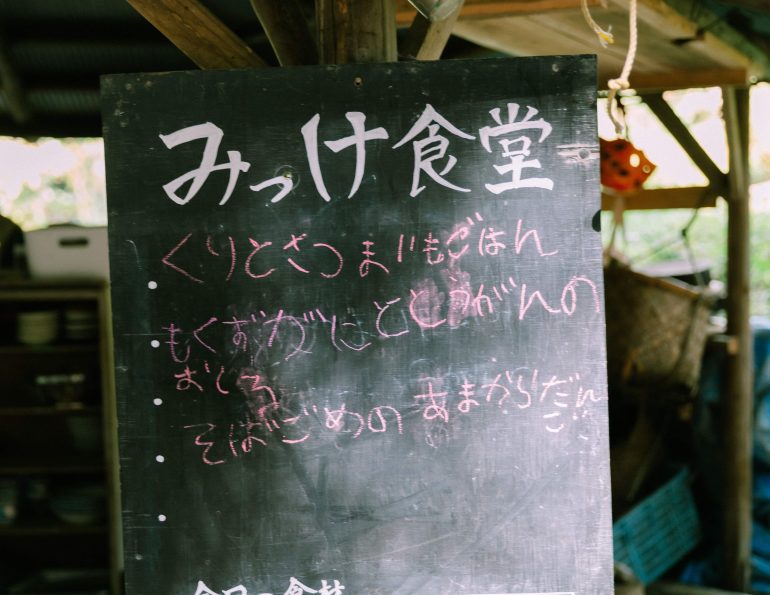 みっけ食堂
くりとさつまいもごはん
もくずがにととうがんの
おしる
そばごめのあまからだん
ご
今日の食材